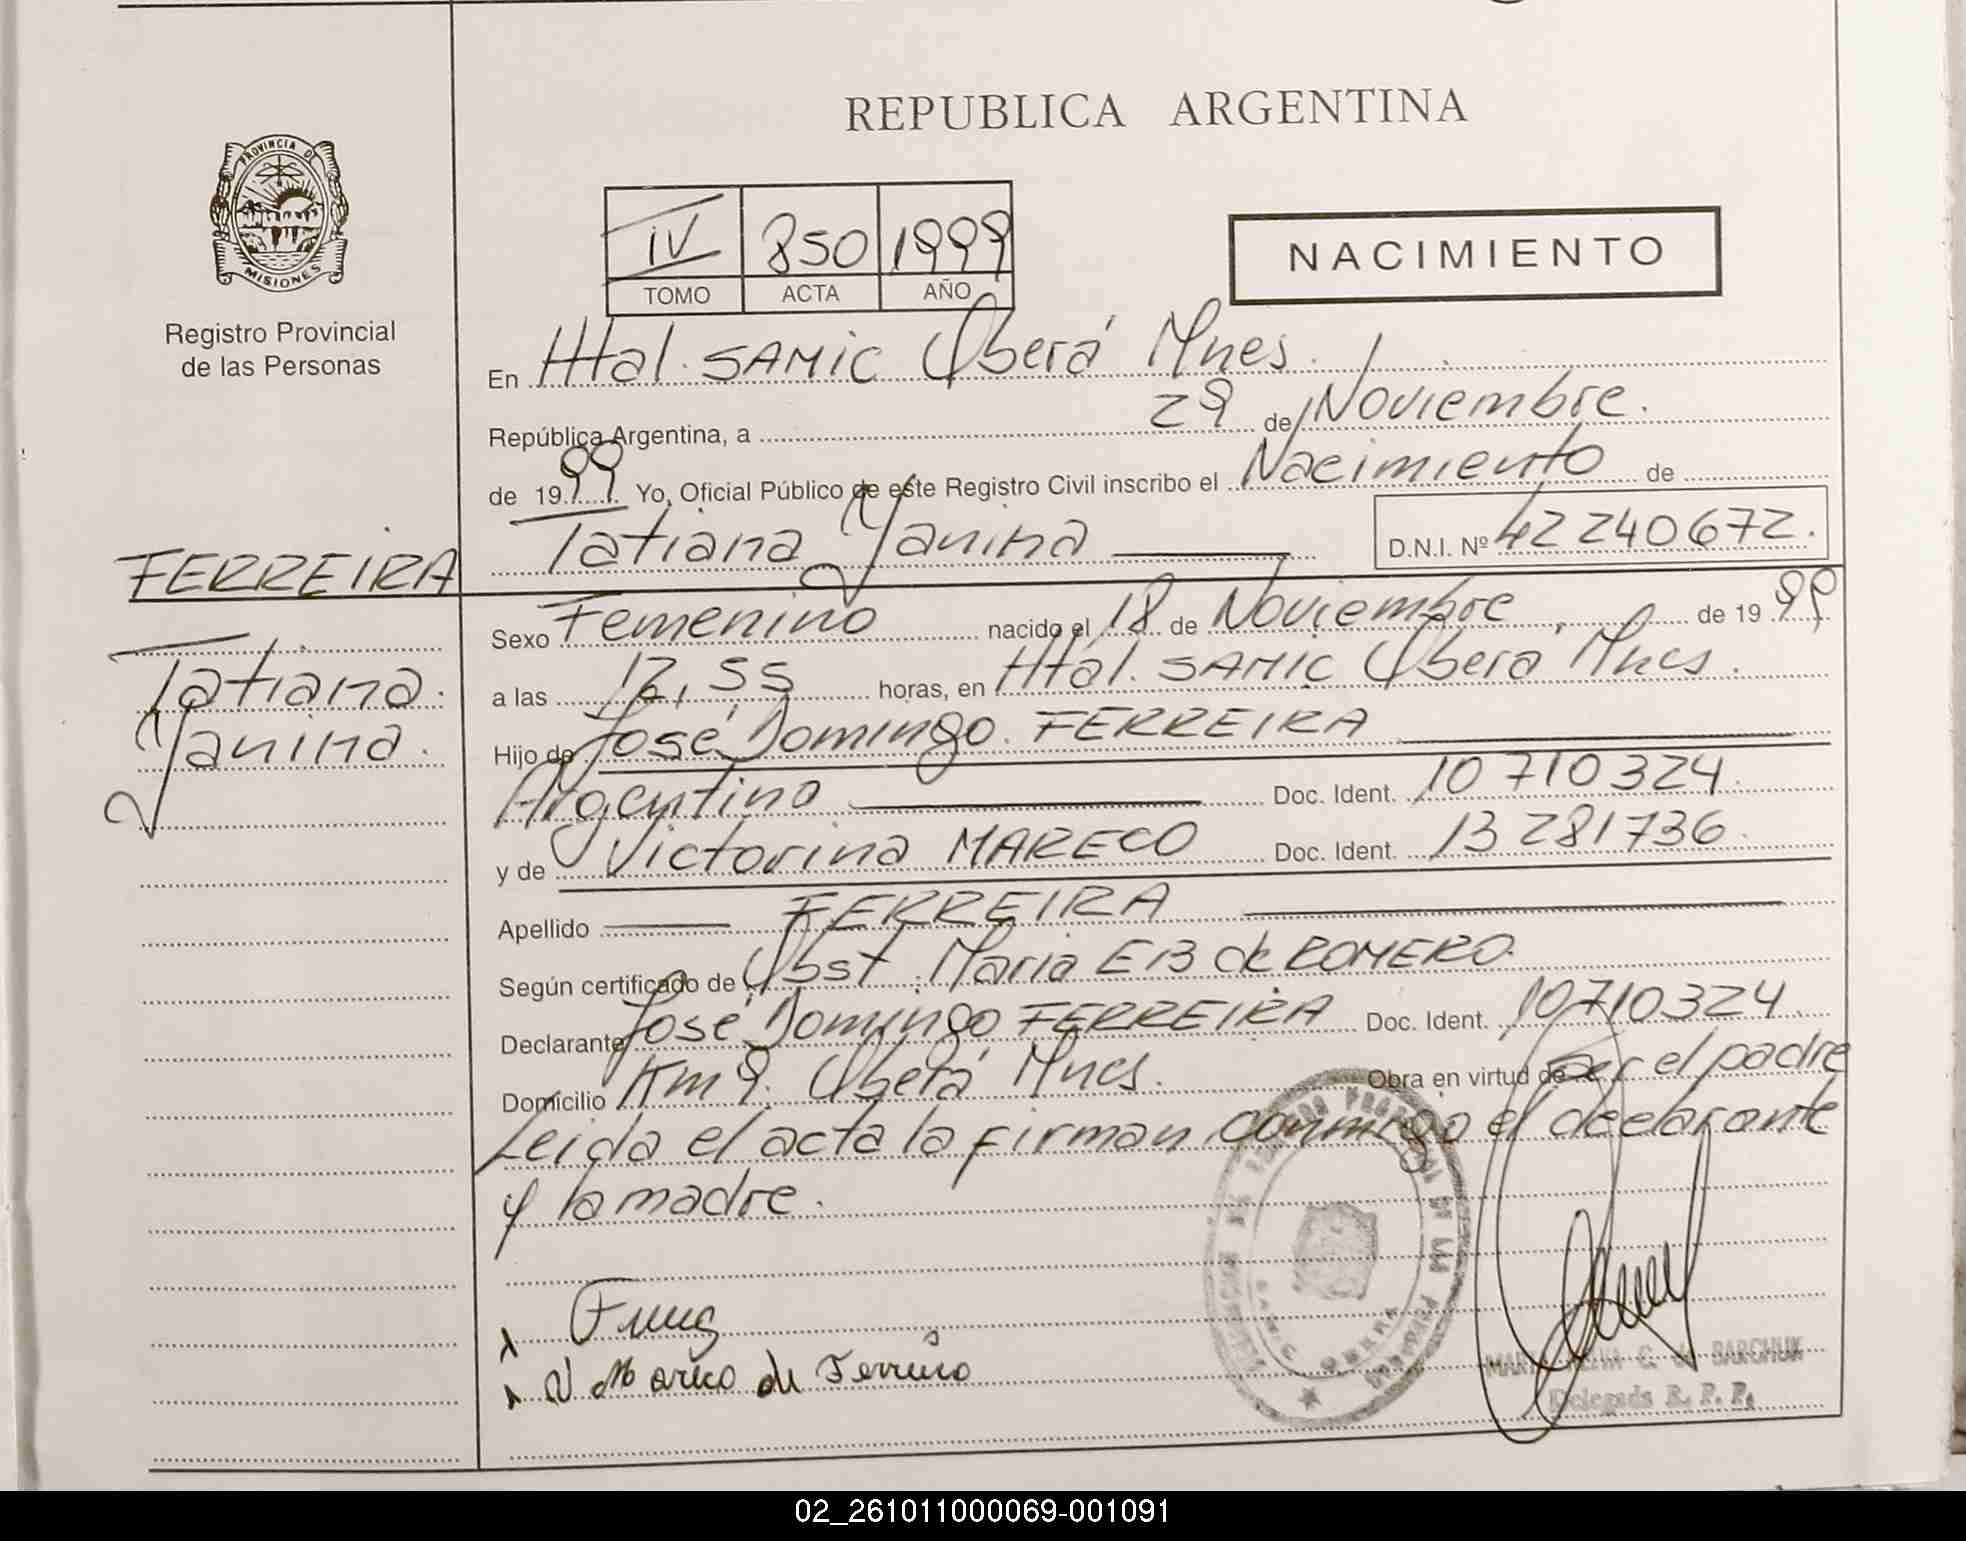 REPUBLICA ARGENTINA
PROVINCIA DE
MISIONES
Registro Provincial
de las Personas
IV 850 1999
TOMO ACTA AÑO
NACIMIENTO
En Htal. SAMIC Oberá Mnes.
República Argentina, a 29 de Noviembre.
de 1999 Yo, Oficial Público de este Registro Civil inscribo el Nacimiento de
Tatiana Yanina D.N.I. Nº 42240672.
FERREIRA
Tatiana.
Yanina.
Sexo Femenino nacido el 18 de Noviembre de 1999
a las 12,55 horas, en Htal. SAMIC Oberá Mnes.
Hijo de José Domingo FERREIRA
Argentino Doc. Ident. 10710324.
y de Victorina MARECO Doc. Ident. 13281736.
Apellido FERREIRA
Según certificado de Obst. Maria E B de ROMERO.
Declarante José Domingo FERREIRA Doc. Ident. 10710324
Domicilio Km 9. Oberá Mnes. Obra en virtud de ser el padre
Leida el acta la firman conmigo el declarante
y la madre.
V Mareco de Ferreira
OBERA
C. de BARCHUK
Delegada R. P. P.
02_261011000069-001091